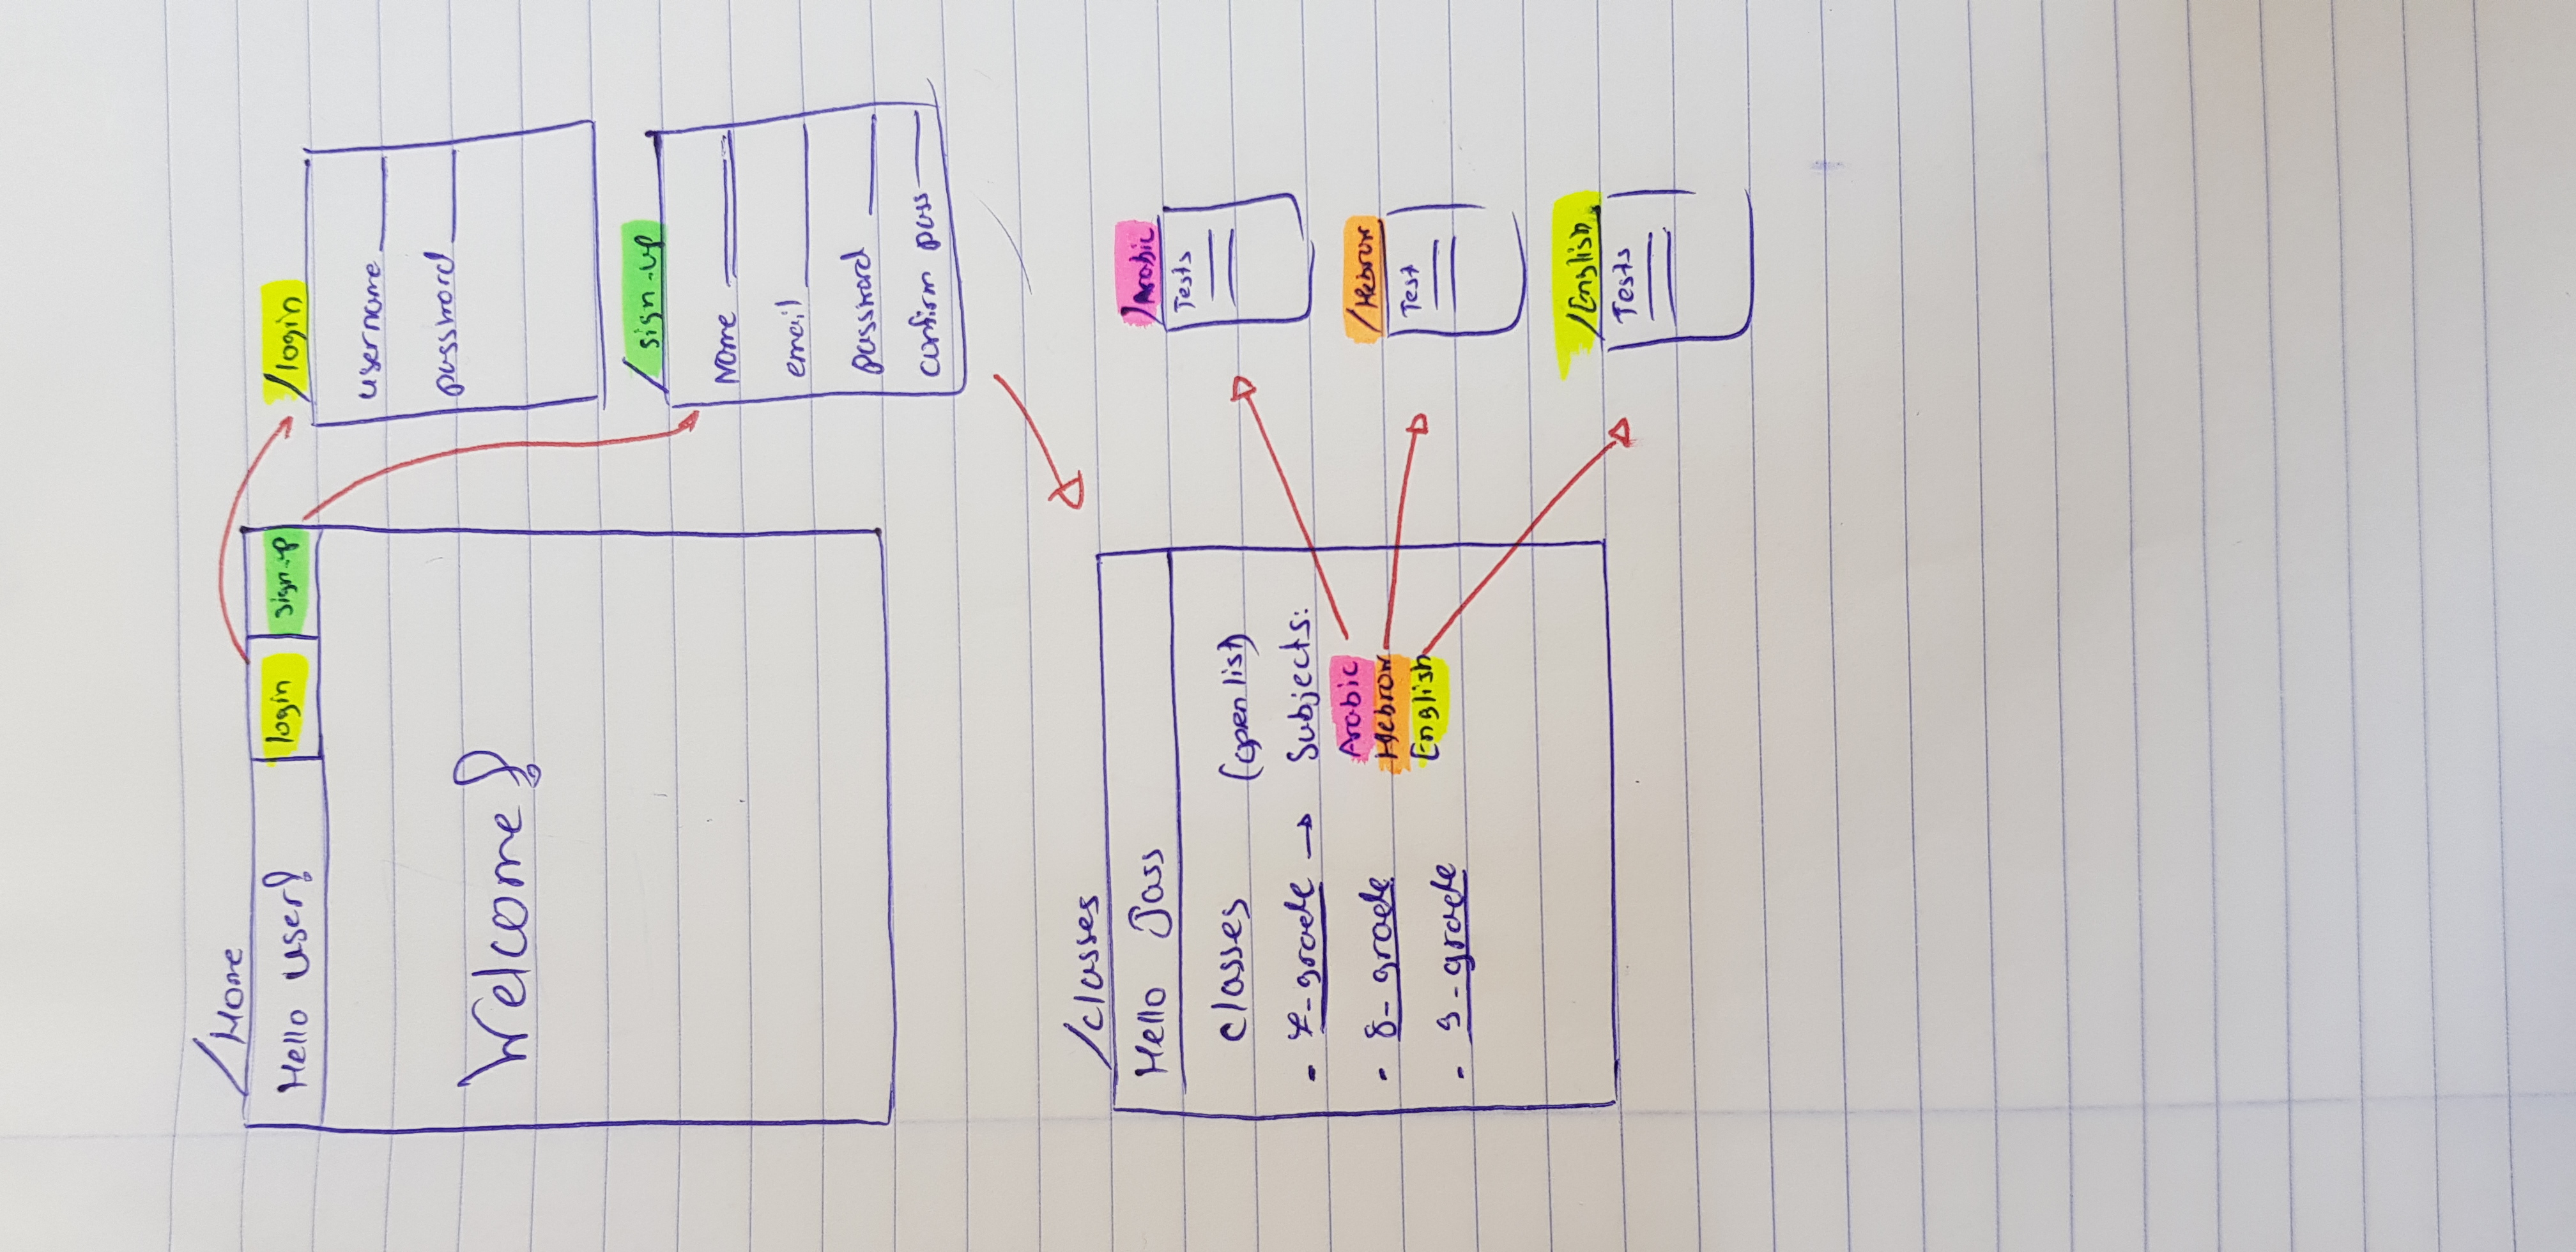 /Home
Hello user!
login
sign-up
Welcome!
/login
username
password
/sign-up
Name
email
password
confirm pass
/classes
Hello Jass
classes (open list)
- 7-grade → Subjects:
Arabic
- 8-grade
Hebrow
English
- 9-grade
/Arabic
Tests
/Hebrow
Test
/English
Tests